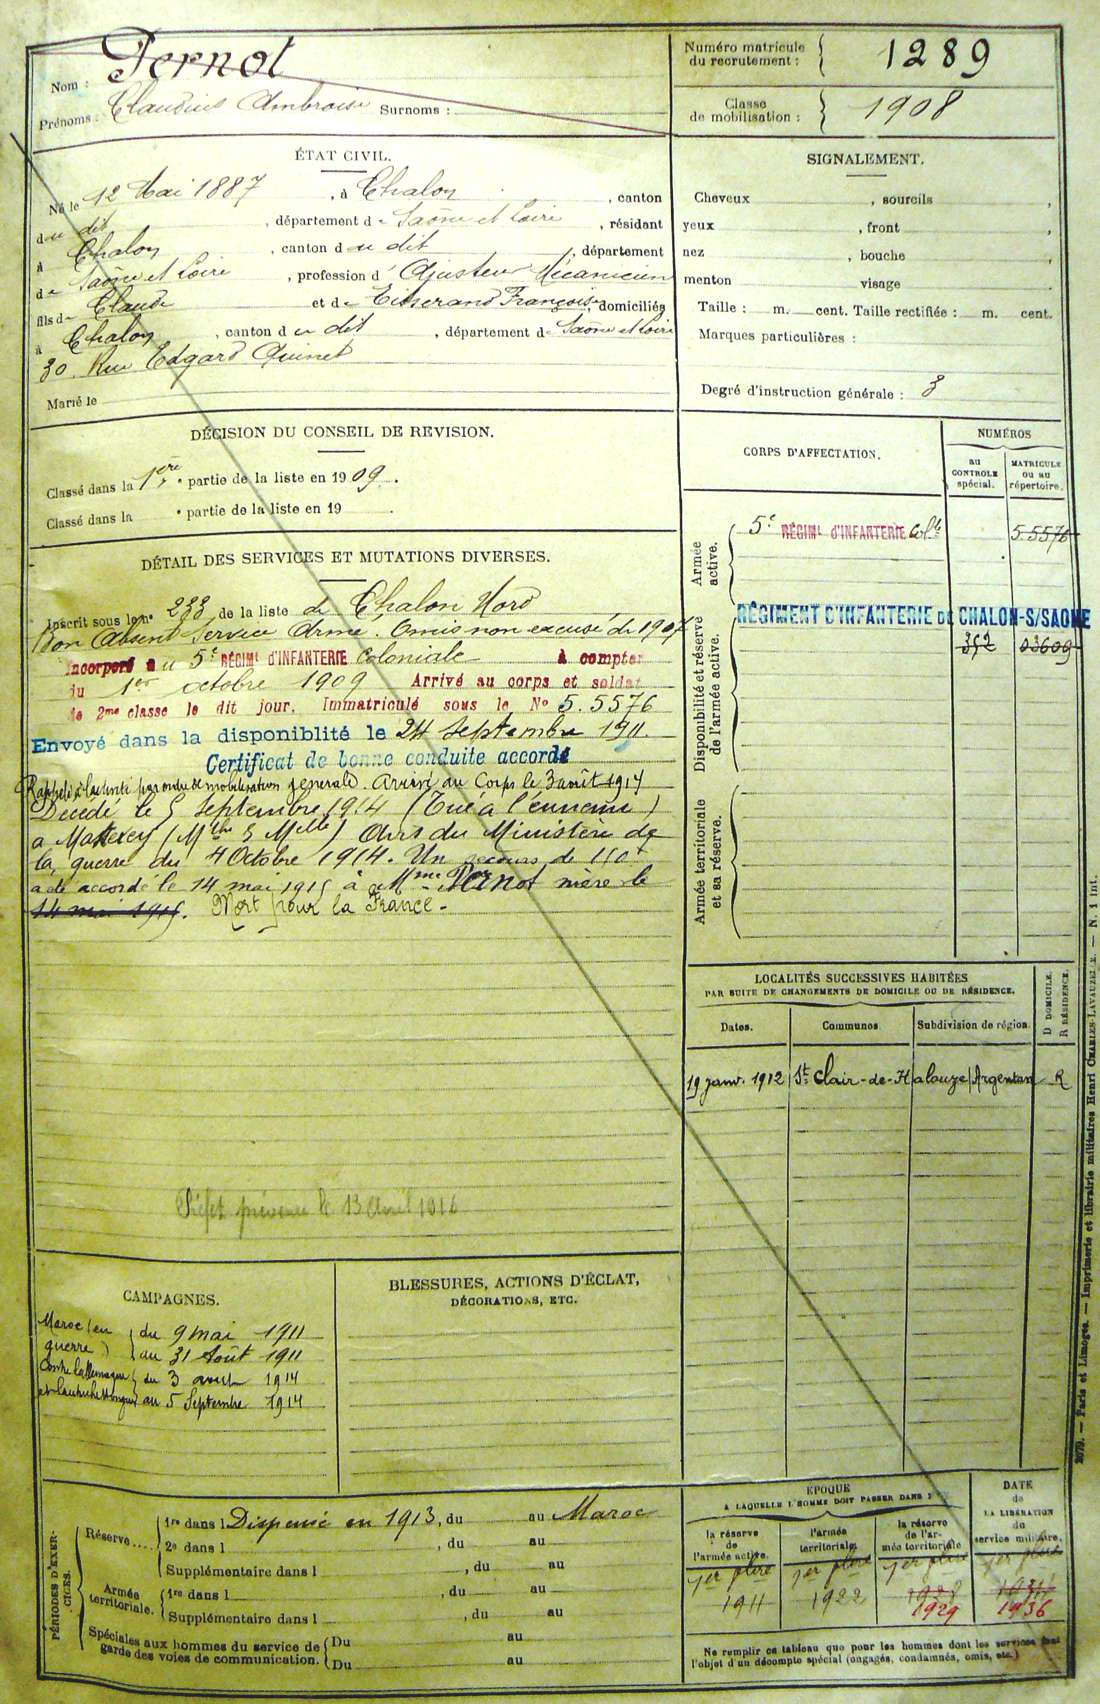 Nom : Pernot
Prénoms : Claudius Ambroise Surnoms :
Numéro matricule du recrutement : 1289
Classe de mobilisation : 1908
ÉTAT CIVIL.
Né le 12 Mai 1887, à Chalon, canton
du dit, département de Saône et Loire, résidant
à Chalon, canton du dit, département
de Saône et Loire, profession d'Ajusteur Mécanicien
fils de Claude et de Tisserand Françoise, domiciliés
à Chalon, canton du dit, département de Saône et Loire
30 Rue Edgard Quinet
Marié le
SIGNALEMENT.
Cheveux , sourcils ,
yeux , front ,
nez , bouche ,
menton visage
Taille : m. cent. Taille rectifiée : m. cent.
Marques particulières :
Degré d'instruction générale : 3
DÉCISION DU CONSEIL DE REVISION.
Classé dans la 1ère partie de la liste en 1909.
Classé dans la e partie de la liste en 19
DÉTAIL DES SERVICES ET MUTATIONS DIVERSES.
Inscrit sous le n° 233 de la liste de Chalon Nord
Bon Absent Service Armé. Omis non excusé de 1907
Incorporé au 5e RÉGIMt D'INFANTERIE Coloniale à compter
du 1er octobre 1909 Arrivé au corps et soldat
de 2me classe le dit jour. Immatriculé sous le No 5.5576
Envoyé dans la disponiblité le 24 septembre 1911.
Certificat de bonne conduite accordé
Rappelé à l'activité par ordre de mobilisation générale. Arrivé au Corps le 3 août 1914
Décédé le 5 septembre 1914 (Tué à l'ennemi)
à Mattexey (Mthe & Mlle) Avis du Ministère de
la guerre du 4 Octobre 1914. Un secours de 150f
a été accordé le 14 mai 1915 à Mme Vve Pernot mère le
14 mai 1915. Mort pour la France -
Préfet prévenu le 13 Avril 1916
CORPS D'AFFECTATION.
NUMÉROS
au CONTROLE spécial.
MATRICULE ou au répertoire.
Armée active.
5e RÉGIMt D'INFANTERIE Colle 5.5576
Disponibilité et réserve de l'armée active.
RÉGIMENT D'INFANTERIE DE CHALON-S/SAONE
352 03609
Armée territoriale et sa réserve.
LOCALITÉS SUCCESSIVES HABITÉES
PAR SUITE DE CHANGEMENTS DE DOMICILE OU DE RÉSIDENCE.
Dates. Communes. Subdivision de région. D DOMICILE. R RÉSIDENCE.
19 janv. 1912 St Clair-de-Halouze Argentan R
CAMPAGNES.
Maroc (en guerre) du 9 mai 1911
au 31 Août 1911
Contre l'Allemagne du 3 août 1914
et l'Autriche Hongrie au 5 Septembre 1914
BLESSURES, ACTIONS D'ÉCLAT,
DÉCORATIONS, ETC.
PÉRIODES D'EXERCICES.
Réserve.... 1re dans l Dispensé en 1913, du au Maroc
2e dans l , du au
Supplémentaire dans l , du au
Armée territoriale. 1re dans l , du au
Supplémentaire dans l , du au
Spéciales aux hommes du service de garde des voies de communication. Du au
Du au
ÉPOQUE
A LAQUELLE L'HOMME DOIT PASSER DANS
la réserve de l'armée active.
l'armée territoriale.
la réserve de l'armée territoriale
DATE de LA LIBÉRATION du service militaire.
1er 8bre 1er 8bre 1er 8bre 1er 8bre
1911 1922 1928 1934
1929 1936
Ne remplir ce tableau que pour les hommes dont les services font
l'objet d'un décompte spécial (engagés, condamnés, omis, etc.)
2079. — Paris et Limoges. — Imprimerie et librairie militaires Henri CHARLES-LAVAUZELLE. — N. 1 int.